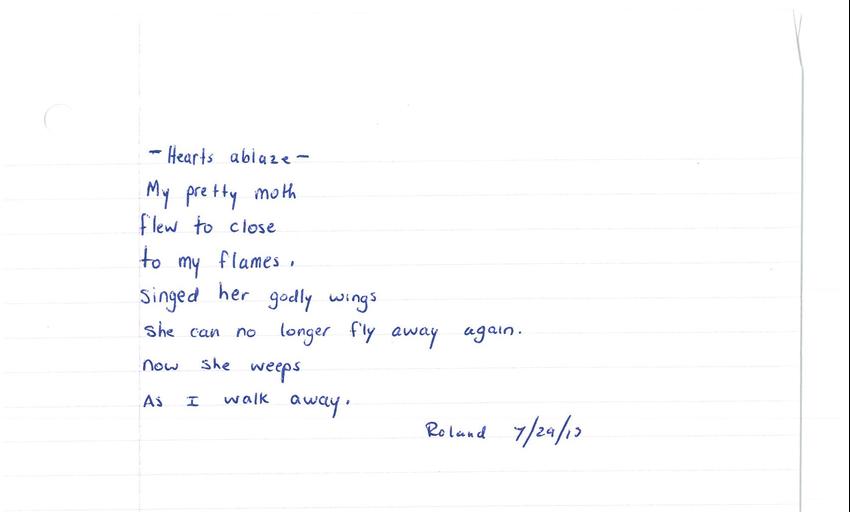 - Hearts ablaze -
My pretty moth
flew to close
to my flames.
Singed her godly wings
She can no longer fly away again.
now she weeps
As I walk away.
Roland